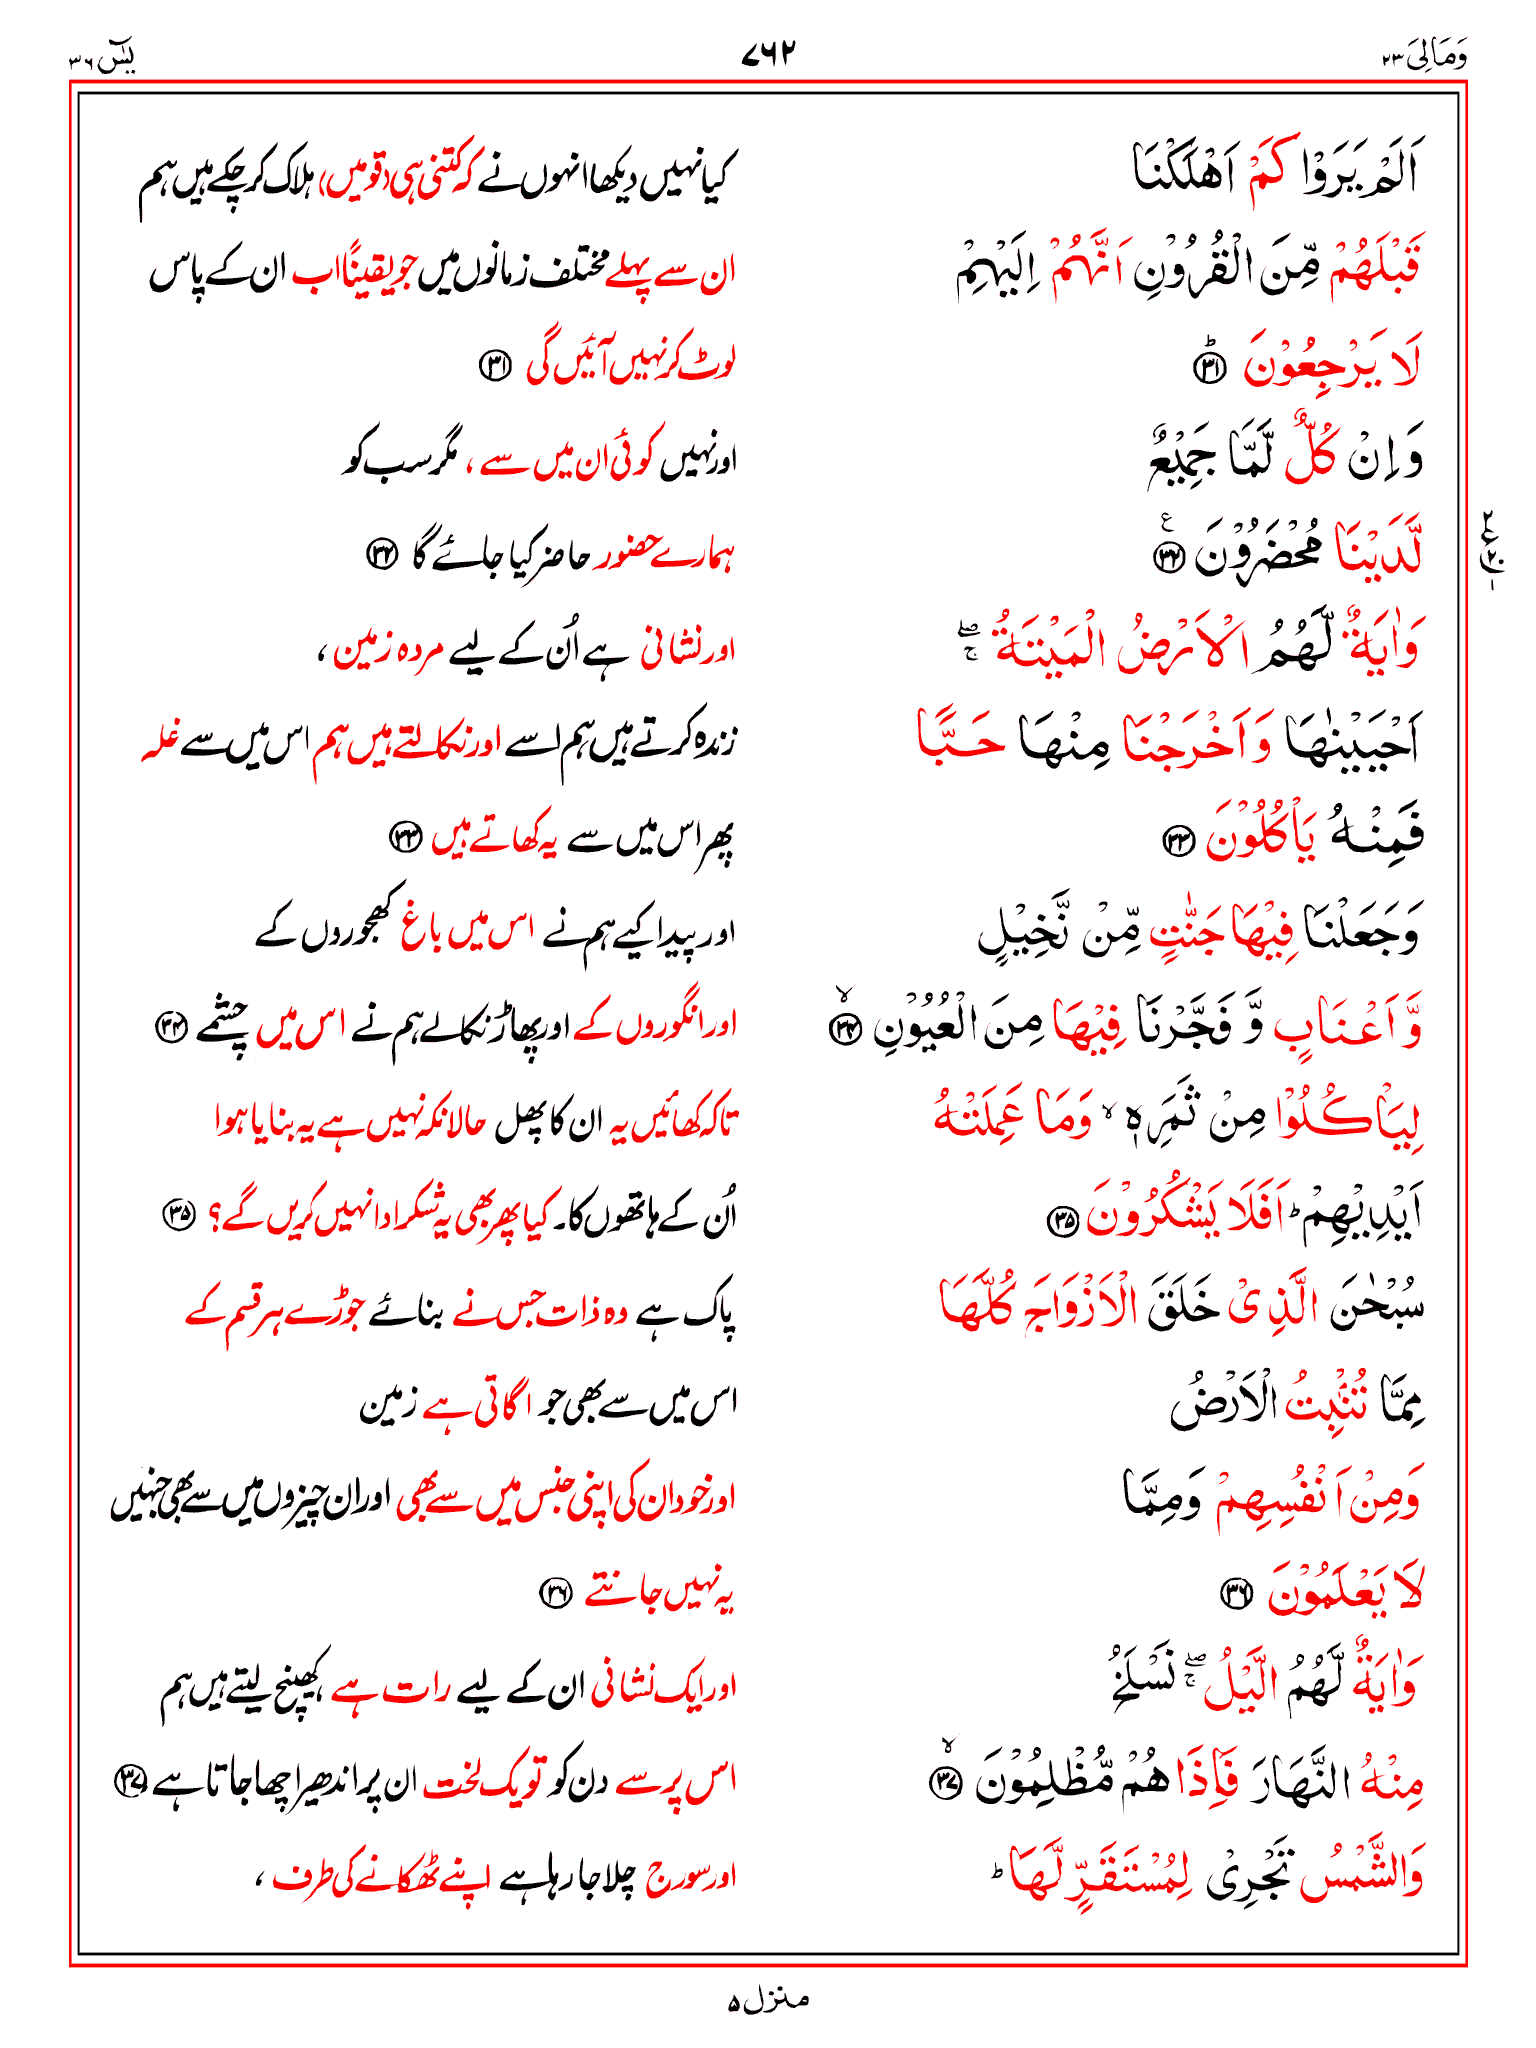 وَمَالِیَ ۲۳
۷۶۲
یٰسٓ ۳۶
اَلَمْ یَرَوْا كَمْ اَهْلَكْنَا
کیا نہیں دیکھا انہوں نے کہ کتنی ہی (قومیں) ہلاک کر چکے ہیں ہم
قَبْلَهُمْ مِّنَ الْقُرُوْنِ اَنَّهُمْ اِلَیْهِمْ
ان سے پہلے مختلف زمانوں میں جو یقیناً اب ان کے پاس
لَا یَرْجِعُوْنَ ؕ ۳۱
لوٹ کر نہیں آئیں گی ۳۱
وَ اِنْ كُلٌّ لَّمَّا جَمِیْعٌ
اور نہیں کوئی ان میں سے ، مگر سب کو
لَّدَیْنَا مُحْضَرُوْنَ ۳۲ ع
ہمارے حضور حاضر کیا جائے گا ۳۲
وَ اٰیَةٌ لَّهُمُ الْاَرْضُ الْمَیْتَةُ ۖۚ
اور نشانی ہے اُن کے لیے مردہ زمین ،
اَحْیَیْنٰهَا وَ اَخْرَجْنَا مِنْهَا حَبًّا
زندہ کرتے ہیں ہم اسے اور نکالتے ہیں ہم اس میں سے غلہ
فَمِنْهُ یَاْكُلُوْنَ ۳۳
پھر اس میں سے یہ کھاتے ہیں ۳۳
وَ جَعَلْنَا فِیْهَا جَنّٰتٍ مِّنْ نَّخِیْلٍ
اور پیدا کیے ہم نے اس میں باغ کھجوروں کے
وَّ اَعْنَابٍ وَّ فَجَّرْنَا فِیْهَا مِنَ الْعُیُوْنِ ۙ ۳۴
اور انگوروں کے اور پھاڑ نکالے ہم نے اس میں چشمے ۳۴
لِیَاْكُلُوْا مِنْ ثَمَرِهٖ ۙ وَمَا عَمِلَتْهُ
تاکہ کھائیں یہ ان کا پھل حالانکہ نہیں ہے یہ بنایا ہوا
اَیْدِیْهِمْ ؕ اَفَلَا یَشْكُرُوْنَ ۳۵
اُن کے ہاتھوں کا۔ کیا پھر بھی یہ شکر ادا نہیں کریں گے؟ ۳۵
سُبْحٰنَ الَّذِیْ خَلَقَ الْاَزْوَاجَ كُلَّهَا
پاک ہے وہ ذات جس نے بنائے جوڑے ہر قسم کے
مِمَّا تُنْۢبِتُ الْاَرْضُ
اس میں سے بھی جو اگاتی ہے زمین
وَمِنْ اَنْفُسِهِمْ وَمِمَّا
اور خود ان کی اپنی جنس میں سے بھی اور ان چیزوں میں سے بھی جنہیں
لَا یَعْلَمُوْنَ ۳۶
یہ نہیں جانتے ۳۶
وَ اٰیَةٌ لَّهُمُ الَّیْلُ ۖۚ نَسْلَخُ
اور ایک نشانی ان کے لیے رات ہے کھینچ لیتے ہیں ہم
مِنْهُ النَّهَارَ فَاِذَا هُمْ مُّظْلِمُوْنَ ۙ ۳۷
اس پر سے دن کو تو یک لخت ان پر اندھیرا چھا جاتا ہے ۳۷
وَالشَّمْسُ تَجْرِیْ لِمُسْتَقَرٍّ لَّهَا ؕ
اور سورج چلا جا رہا ہے اپنے ٹھکانے کی طرف ،
منزل ۵